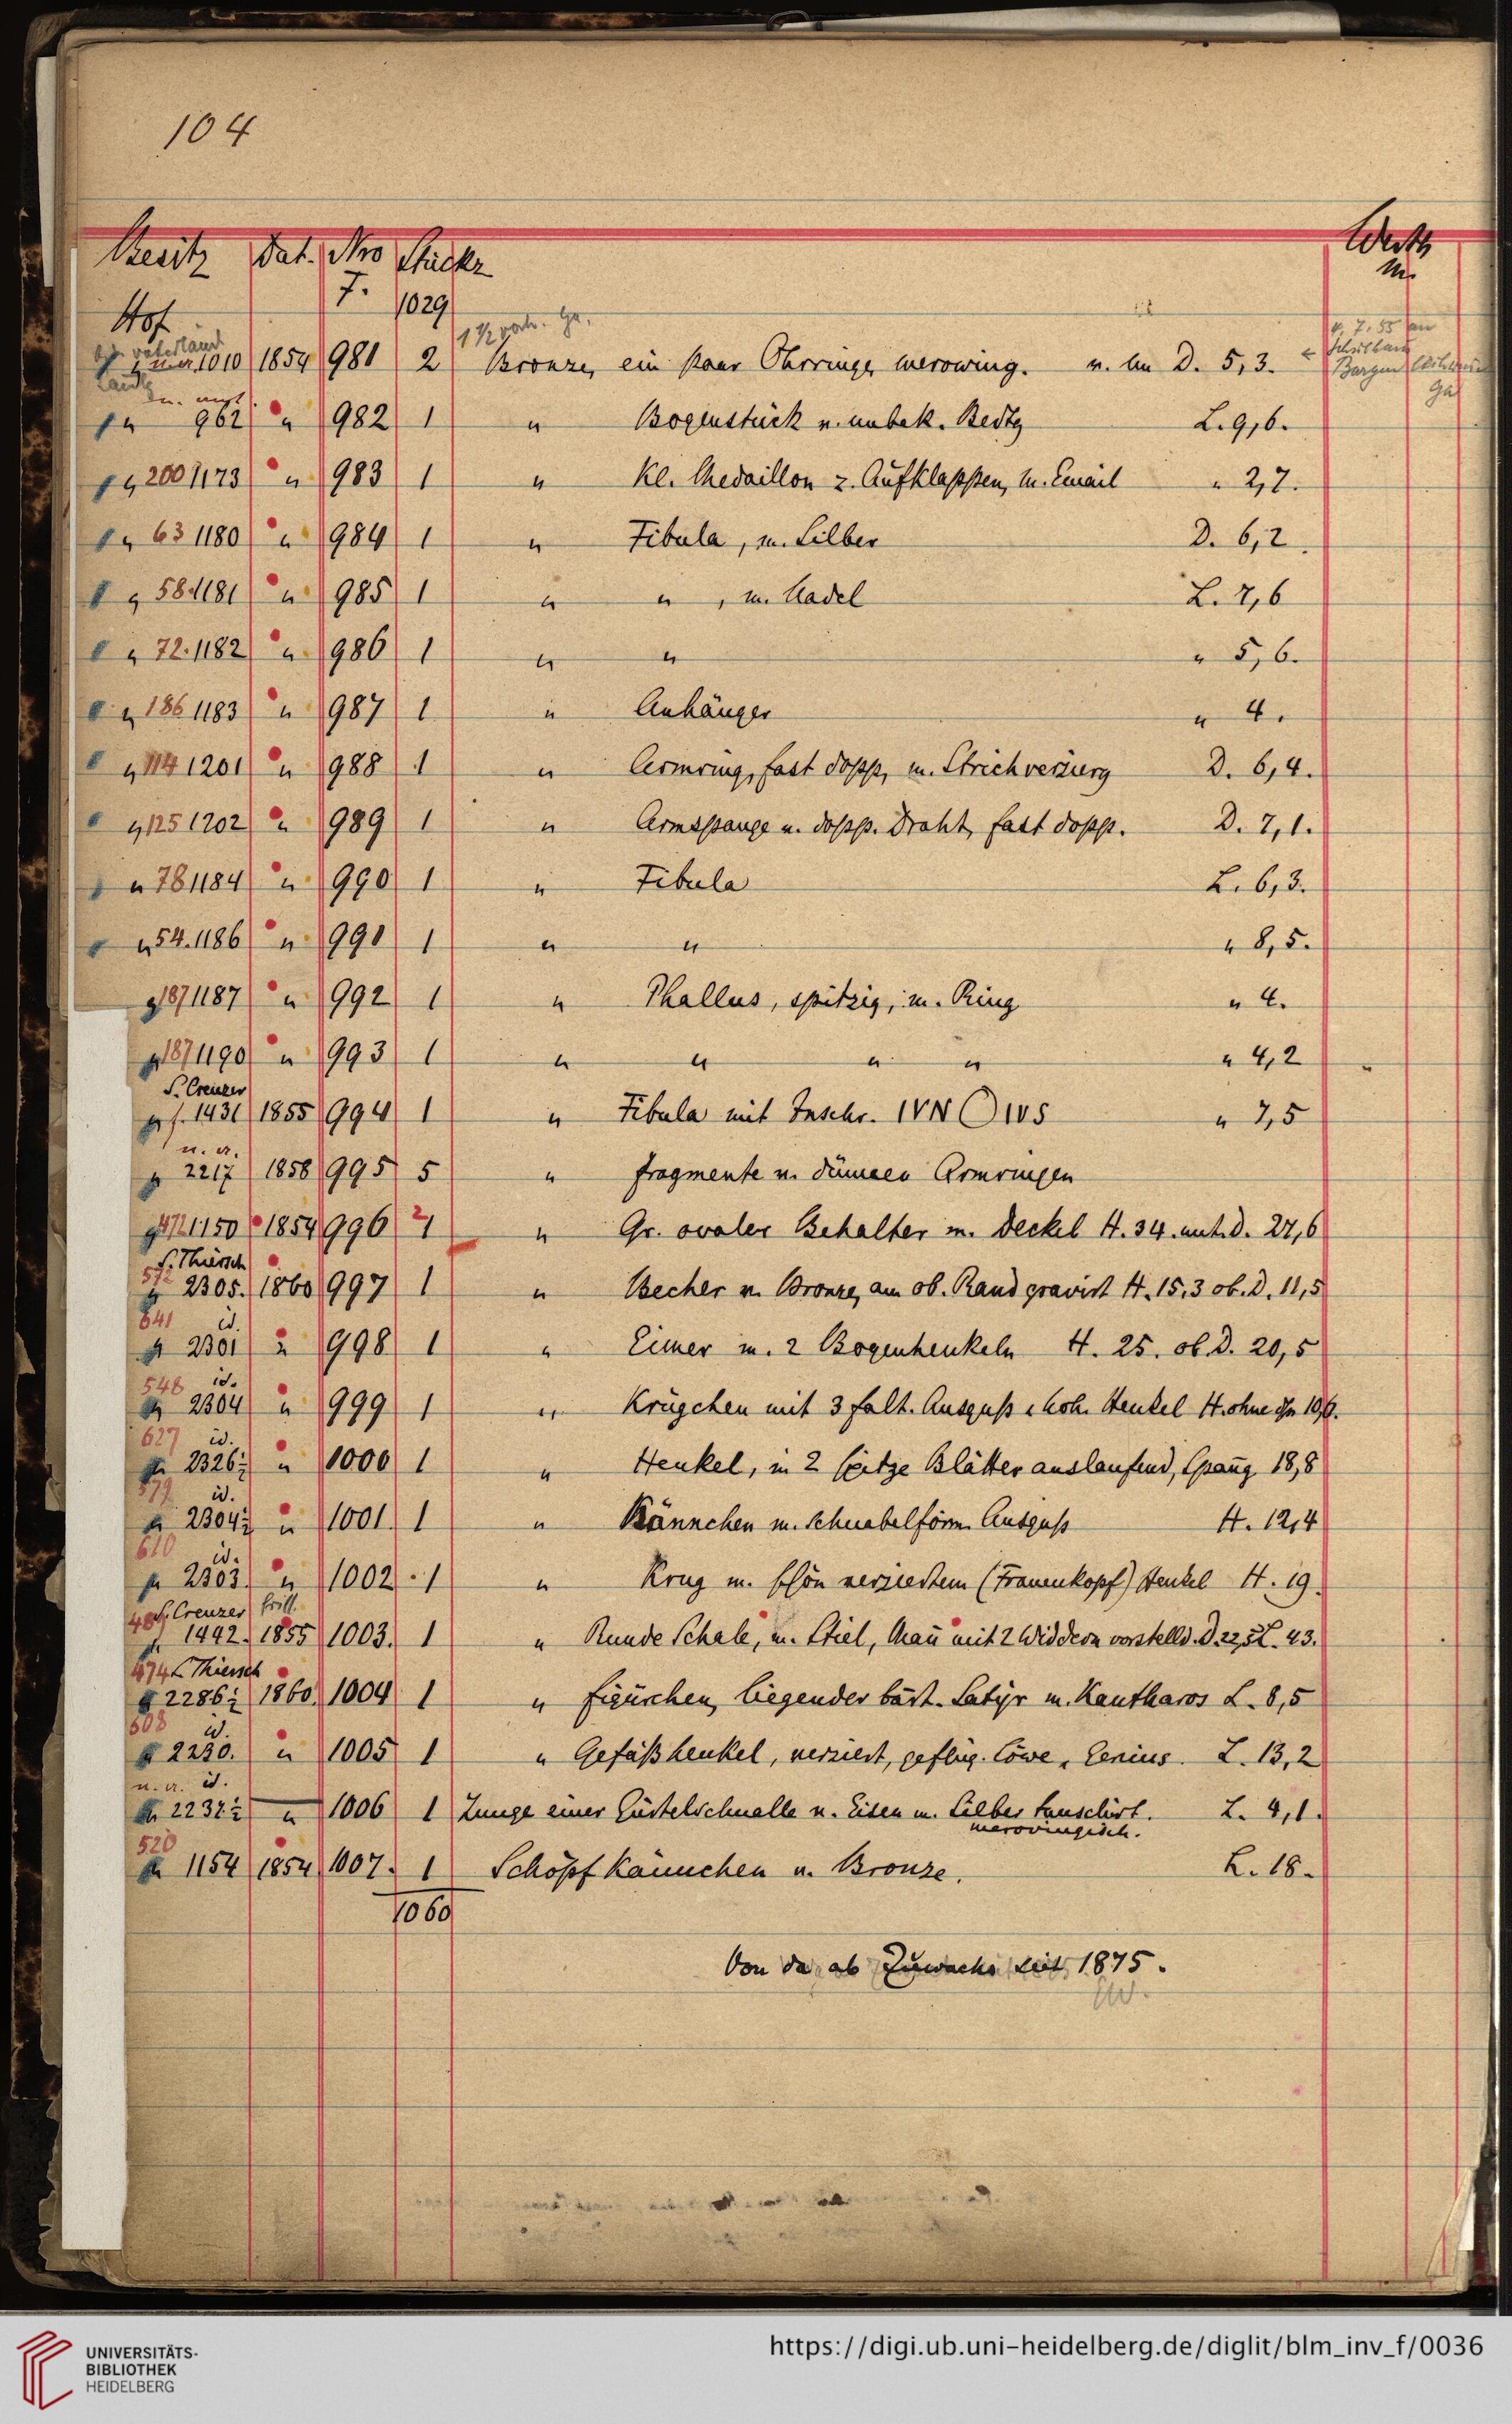 104
Besitz Dat. Nro Stücke Werth
F. M.
Hof 1029
1 1/2 vorh. Ga.
1010 1854 981 2 Bronze, ein paar Ohrringe, merowing. D. 5,3.
" 962 " 982 1 " Bogenstück v. unbek. Bedtg L. 9,6.
" 200 1173 " 983 1 " Kl. Medaillon z. Aufklappen, m. Email " 2,7.
" 63 1180 " 984 1 " Fibula, m. Silber D. 6,2.
" 58. 1181 " 985 1 " " , m. Nadel L. 7,6
" 72. 1182 " 986 1 " " " 5,6.
" 186 1183 " 987 1 " Anhänger " 4.
" 114 1201 " 988 1 " Armring, fast dopp, m. Strichverzierg D. 6,4.
" 125 1202 " 989 1 " Armspange v. dopp. Draht, fast dopp. D. 7,1.
" 78 1184 " 990 1 " Fibula L. 6,3.
" 54. 1186 " 991 1 " " " 8,5.
" 187 1187 " 992 1 " Phallus, spitzig, m. Ring " 4.
" 187 1190 " 993 1 " " " " " 4,2
S. Creuzer
" f. 1431 1855 994 1 " Fibula mit Inschr. IVN O IVS " 7,5
u. a.
" 2217 1858 995 5 " fragmente v. dünnen Armringen
" 472 1150 1854 996 " Gr. ovaler Behalter m. Deckel H. 34. unt. D. 27,6
S. Thiersch
572 " 2305. 1860 997 1 " Becher v. Bronze, am ob. Rand gravirt H. 15,3 ob. D. 11,5
641 id.
" 2301 " 998 1 " Eimer m. 2 Bogenhenkeln H. 25. ob. D. 20,5
548 id.
" 2304 " 999 1 " Krügchen mit 3 falt. Ausguß u hoh. Henkel H. ohne
627 id.
" 2326 1/2 " 1000 1 " Henkel, in 2 spitze Blätter auslaufend, Spang 18,8
579 id.
" 2304 1/2 " 1001. 1 " Kännchen m. schnabelförm. Ausguß H. 12,4
610 id.
" 2303. " 1002. 1 " Krug m. schön verziertem (Frauenkopf) Henkel H. 19.
S. Creuzer
" 1442. 1855 1003. 1 " Runde Schale, m. Stiel, Man̄ mit 2 Widdern vorstelld. D. 22,5 L. 43.
474 S. Thiersch
" 2286 1/2 1860. 1004 1 " Figürchen, liegender bärt. Satyr m. Kantharos L. 8,5
608 id.
" 2230. " 1005 1 " Gefäßhenkel, verziert, geflüg. Löwe, Genius. L. 13,2
u. a. id.
" 2232 1/2 " 1006 1 Zunge einer Gürtelschnalle v. Eisen m. Silber tauschirt. L. 4,1.
merovingisch.
520
" 1154 1854 1007. 1 Schöpfkännchen v. Bronze. L. 18.
1060
Von da ab Zuwachs seit 1875.
UNIVERSITÄTS-
BIBLIOTHEK
HEIDELBERG
https://digi.ub.uni-heidelberg.de/diglit/blm_inv_f/0036